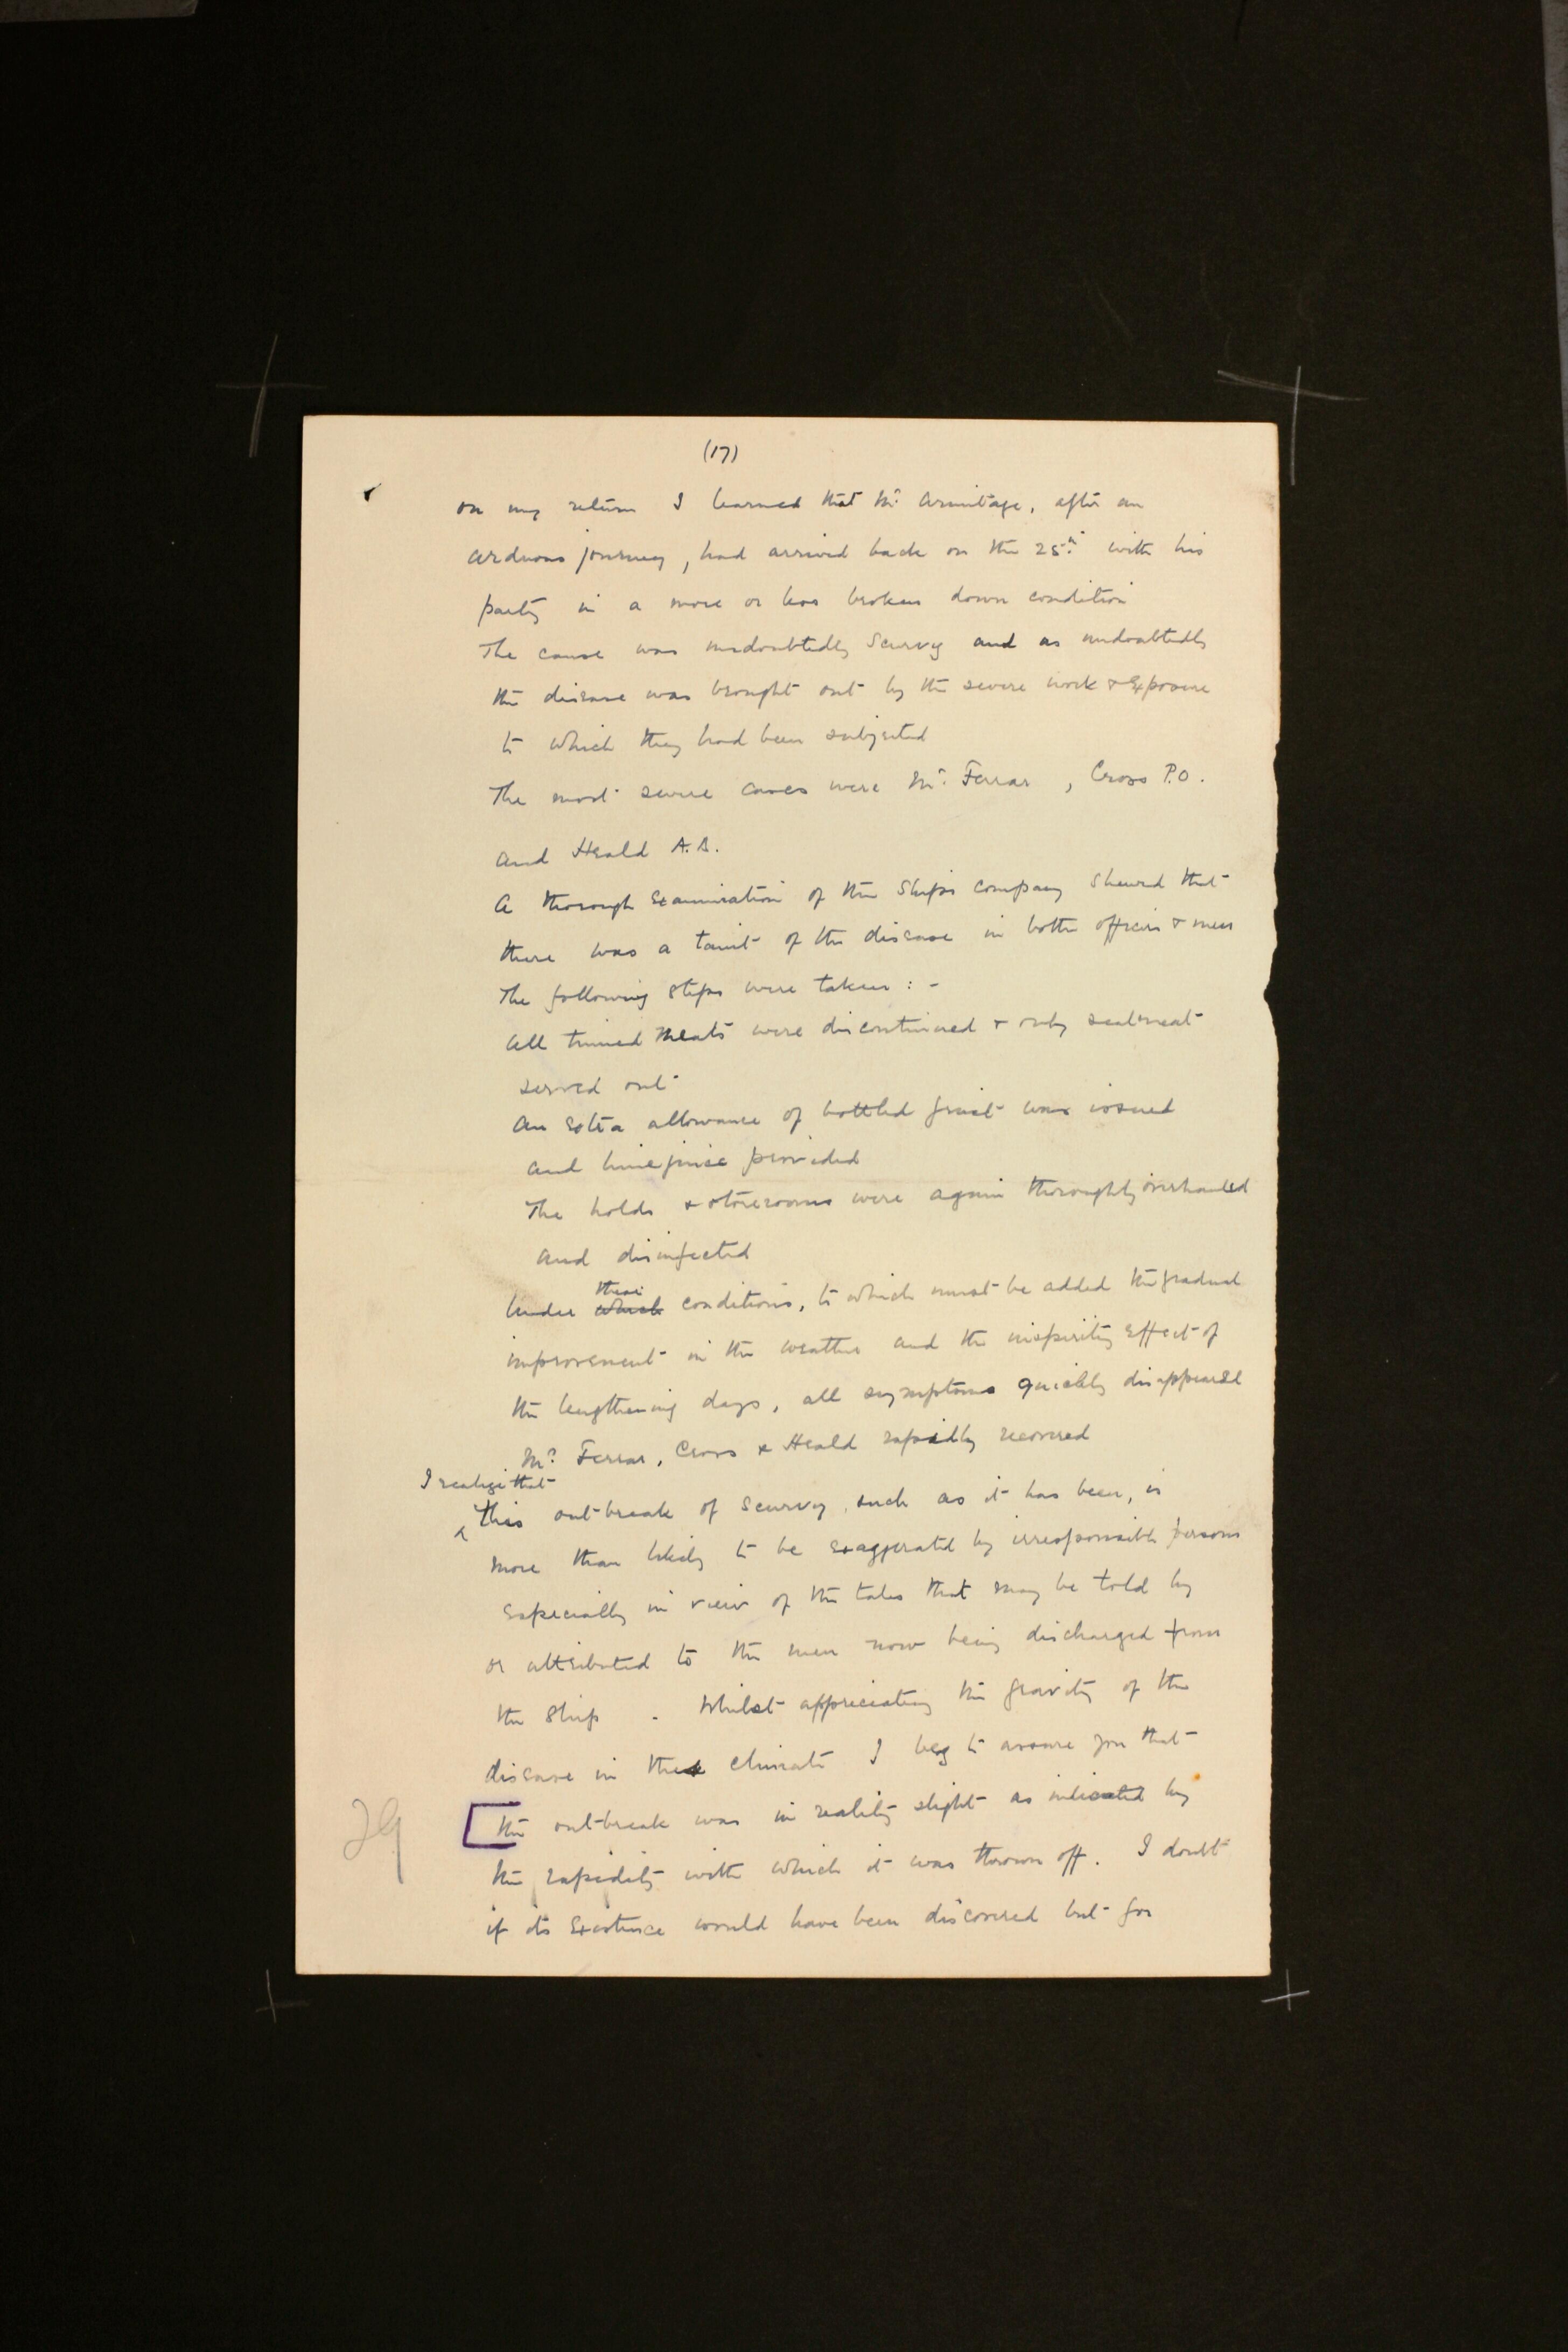 (17)
on my return I learned that Mr Armitage, after an
arduous journey, had arrived back on the 25th with his
party in a more or less broken down condition
The cause was undoubtedly Scurvy and as undoubtedly
the disease was brought out by the severe work & exposure
to which they had been subjected
The most severe cases were Mr. Ferrar, Cross P.O.
and Heald A.B.
A thorough examination of the Ships company shewed that
there was a taint of the disease in both officers & men
The following steps were taken : -
All tinned meats were discontinued & only sealmeat
served out
An extra allowance of bottled fruit was issued
and limejuice provided
The holds & storerooms were again thoroughly overhauled
and disinfected
these
Under which conditions, to which must be added the gradual
improvement in the weather and the inspiriting effect of
the lengthening days, all symptoms quickly disappeared
Mr. Ferrar, Cross & Heald rapidly recovered
I realize that
This outbreak of scurvy, such as it has been, is
more than likely to be exaggerated by irresponsible persons
especially in view of the tales that may be told by
or attributed to the men now being discharged from
the ship. Whilst appreciating the gravity of the
disease in these climate I beg to assure you that
[the outbreak was in reality slight as indicated by
29
the rapidity with which it was thrown off. I doubt
if its existence would have been discovered but for